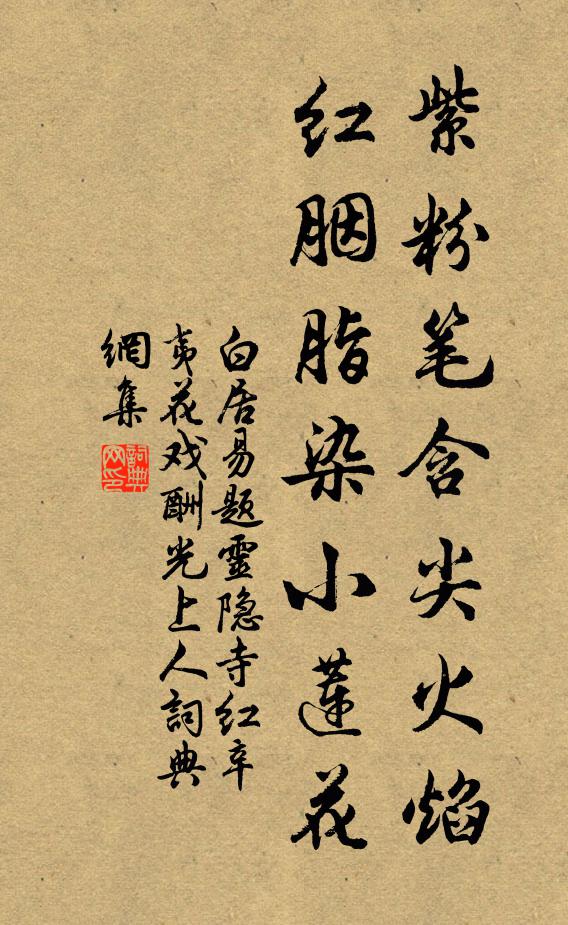 紫粉笔含尖火焰
红胭脂染小蓮花
白居易题靈隐寺红辛
夷花戏酬光上人詞典
網集
詞典网印